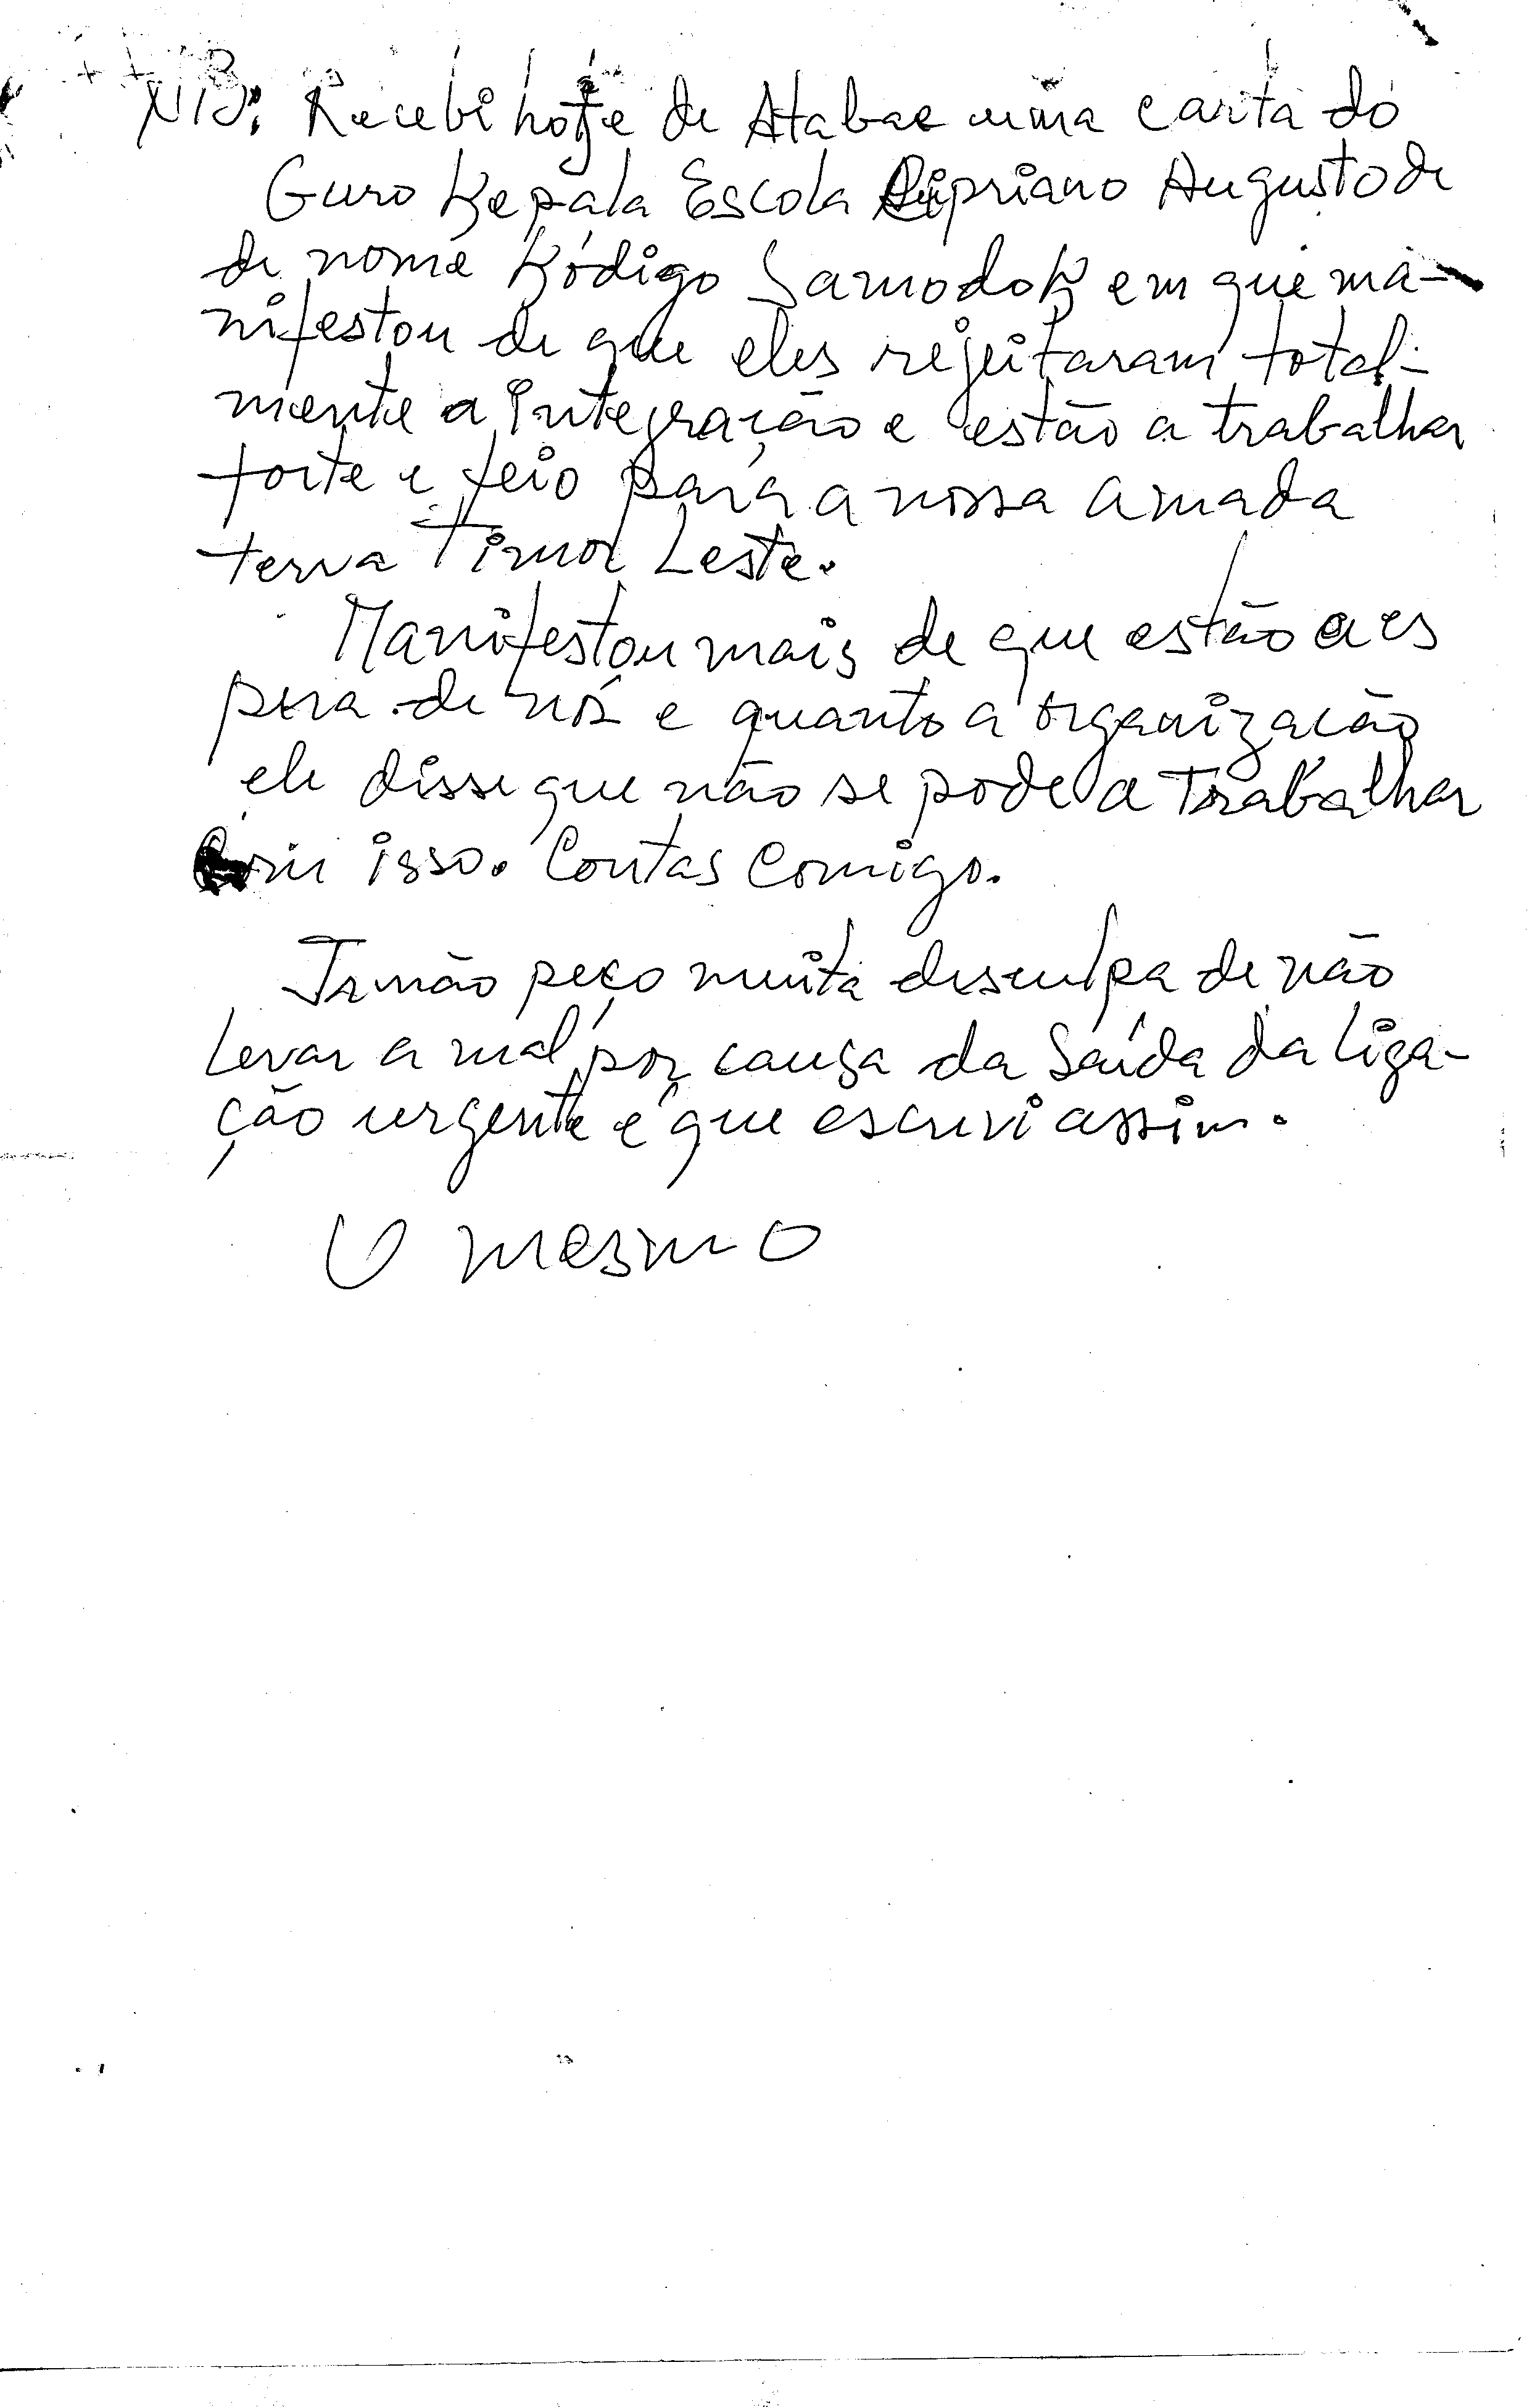 NB: Recebi hoje de Atabae uma carta do
Guro Kepala Escola Cipriano Augusto de
de nome Kódigo Samodok em que ma-
nifestou de que eles rejeitaram total-
mente a Integração e estão a trabalhar
forte e feio para a nossa amada
terra Timor Leste.
Manifestou mais de que estão a es
pera de nós e quanto a organização
ele disse que não se pode a trabalhar
com isso. Contas comigo.
Irmão peço muita desculpa de não
levar a mal por causa da saída da liga-
ção urgente é que escrevi assim.
O mesmo